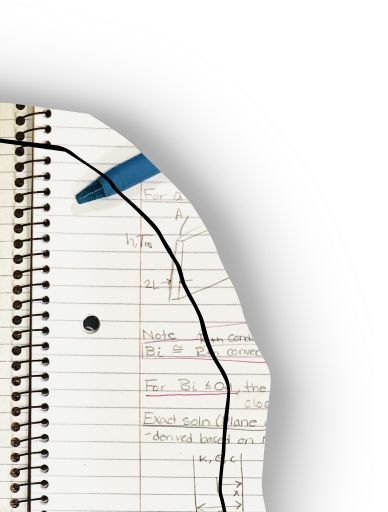 For a
A
h, T∞
2L
Note Rth cond
Bi ≅ Rth convec
For Bi ≤ 0.1, the
clo
Exact soln (plane
-derived based on
k, ρ, c
x